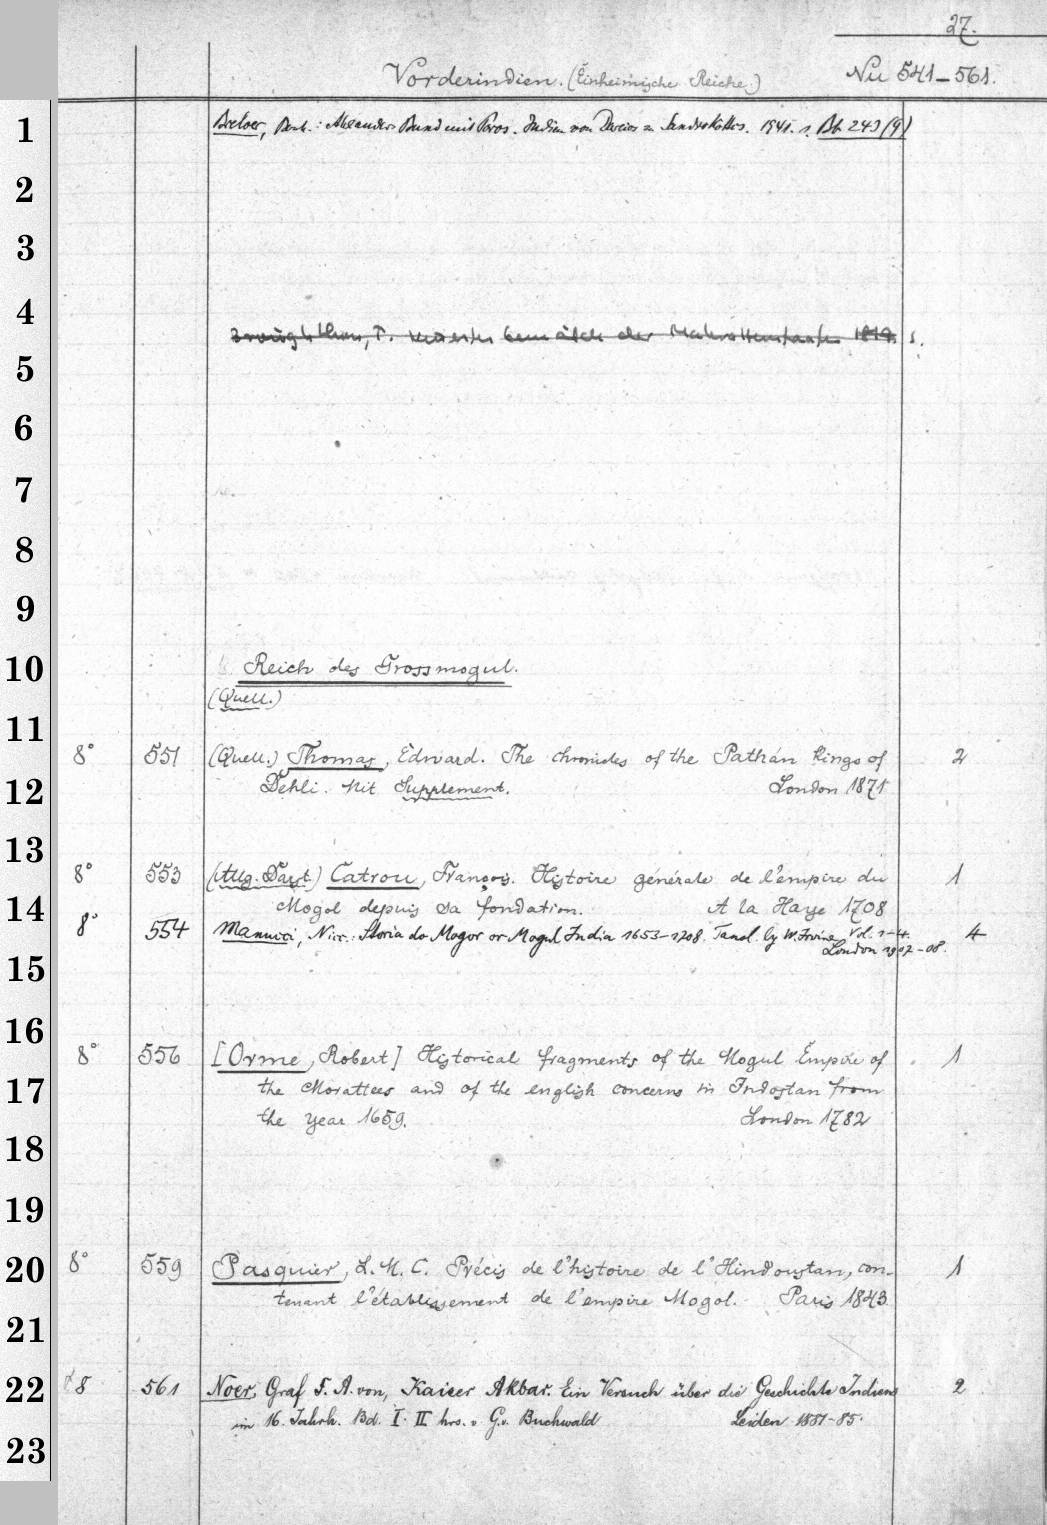 27.
Vorderindien. (Einheimische Reiche.) Nu 541-561.
1 Breloer, Bernh.: Alexanders Bund mit Poros. Indien von Dareios zu Sandrokottos. 1941. s. Bb 243 (9)
2
3
4
Broughthon, T. der Mahrattenstaaten 1819. s.
5
6
7
8
9
10 Reich des Grossmogul.
(Quell.)
11
8° 551 (Quell.) Thomas, Edward. The chronicles of the Pathán Kings of 2
12 Dehli. Mit Supplement. London 1871
13
8° 553 (Allg. Darst.) Catrou, François. Histoire générale de l'empire du 1
14 Mogol depuis sa fondation. A la Haye 1708
8° 554 Manucci, Nicc.: Storia do Mogor or Mogul India 1653-1708. Transl. by W. Irvine Vol. 1-4. 4
London 1907-08.
15
16
8° 556 [Orme, Robert] Historical fragments of the Mogul Empire of 1
17 the Morattoes and of the english concerns in Indostan from
the year 1659. London 1782
18
19
20 8° 559 Pasquier, L. M. C. Précis de l'histoire de l'Hindoustan, con- 1
tenant l'établissement de l'empire Mogol. Paris 1843
21
22 8 561 Noer, Graf F. A. von, Kaiser Akbar. Ein Versuch über die Geschichte Indiens 2
im 16. Jahrh. Bd. I. II hrs. v G. v. Buchwald Leiden 1881-85.
23